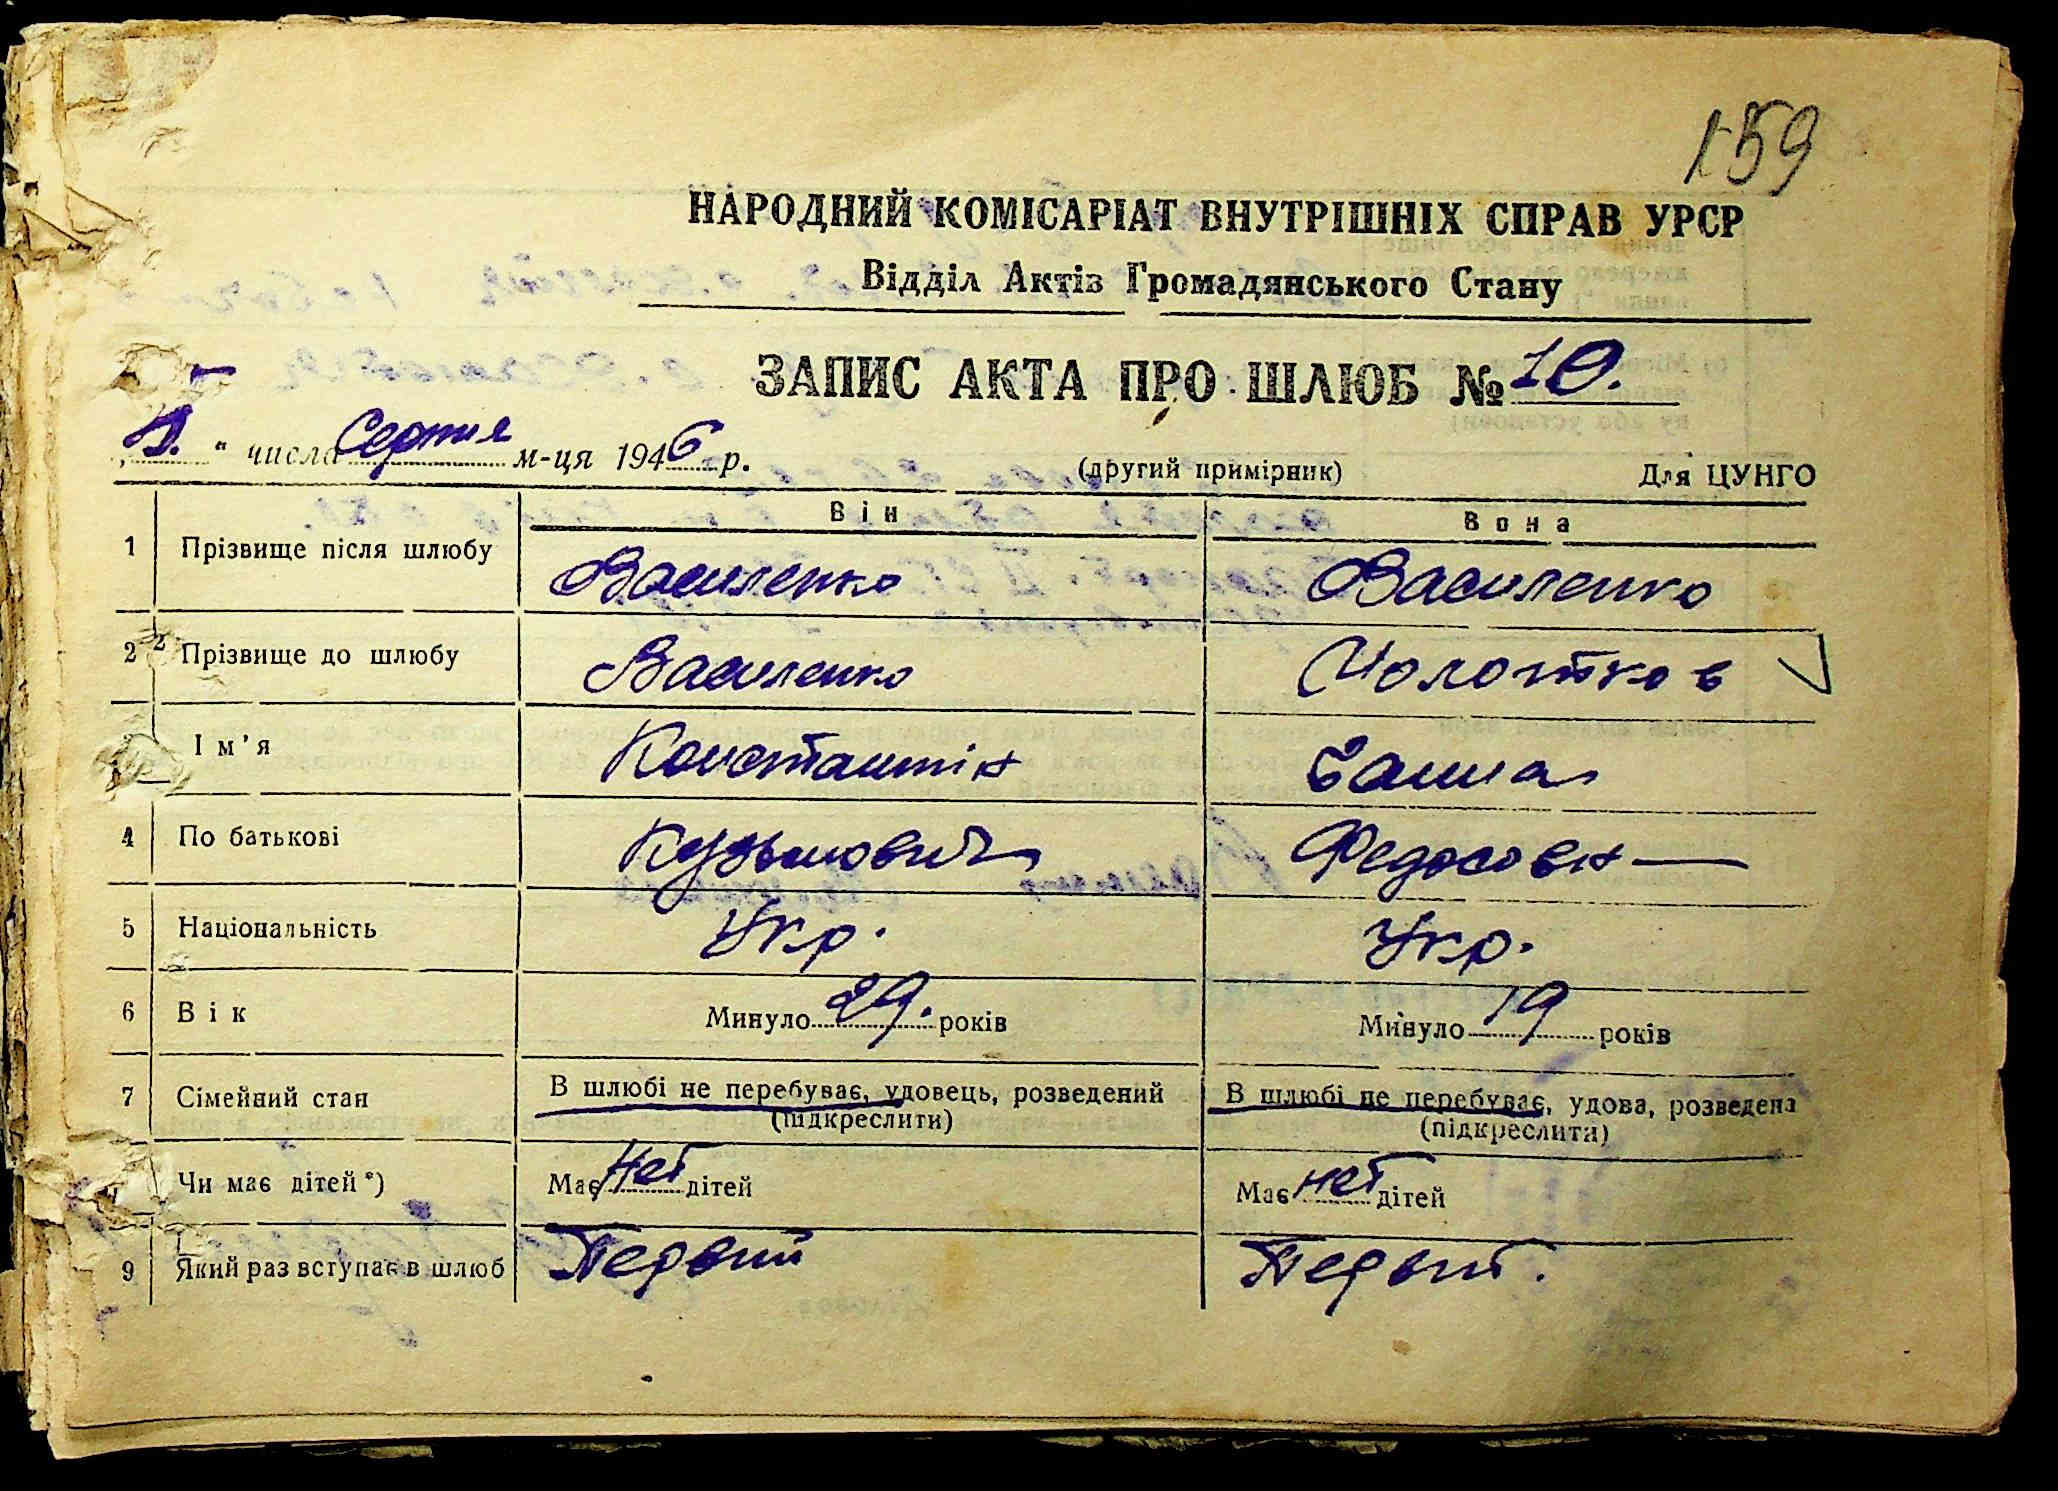 159
НАРОДНИЙ КОМІСАРІАТ ВНУТРІШНІХ СПРАВ УРСР
Відділ Актів Громадянського Стану
ЗАПИС АКТА ПРО ШЛЮБ № 10.
" числа Серпня м-ця 1946 р. (другий примірник) Для ЦУНГО
Він Вона
1 Прізвище після шлюбу Василенко Василенко
2 Прізвище до шлюбу Василенко Молотков
3 Ім'я Константін Ганна
4 По батькові Кузьмович Федосовн
5 Національність Укр. Укр.
6 Вік Минуло 29. років Минуло 19 років
7 Сімейний стан В шлюбі не перебуває, удовець, розведений В шлюбі не перебуває, удова, розведена
(підкреслити) (підкреслити)
Чи має дітей*) Має нет дітей Має нет дітей
9 Який раз вступає в шлюб Первий Первий.